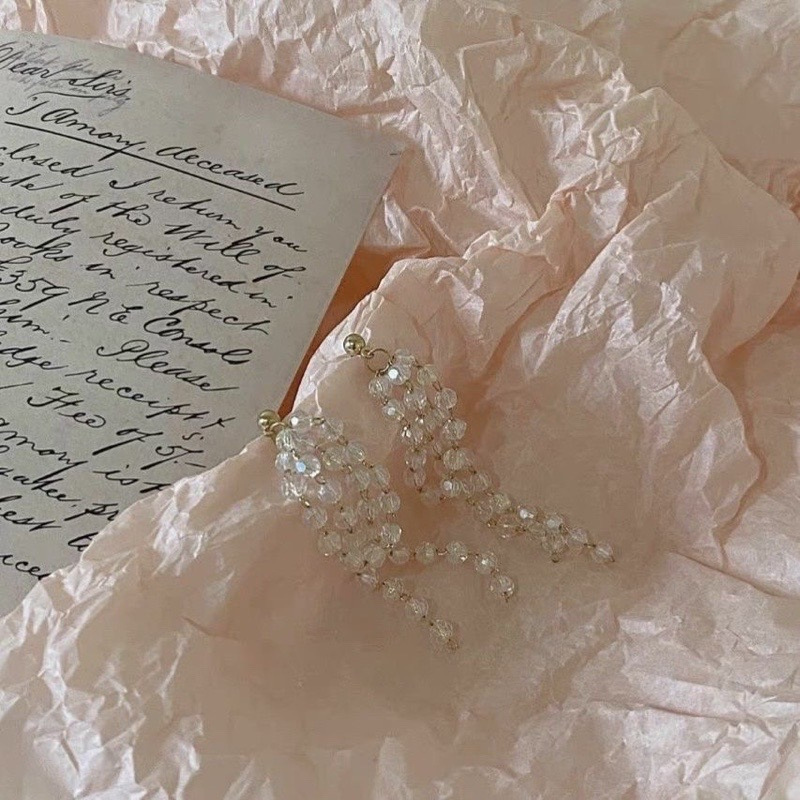 Dear Sirs,
T Amory, deceased
closed I return you
ate of the Will of
duly registered in
books in respect
£359 N E Consols
him: Please
dge receipt &
Fee of 5/-
amory is
take
est to